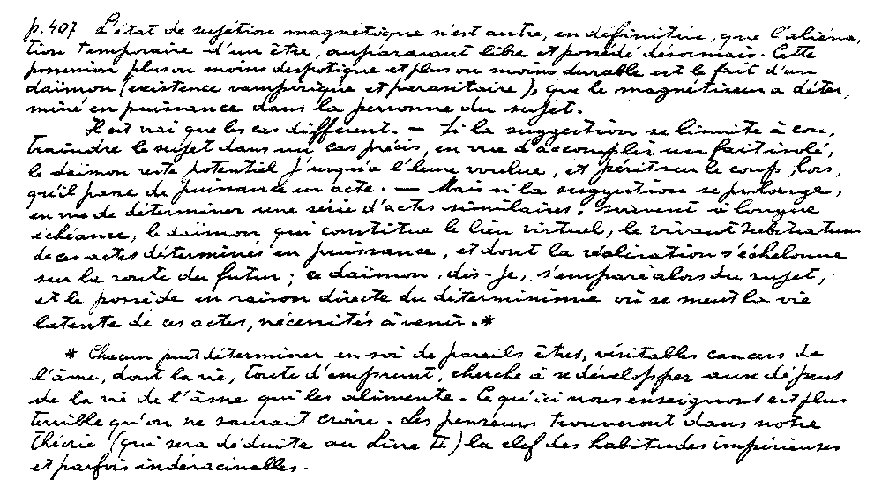 p.407 L'état de sujétion magnétique n'est autre, en définitive, que l'aliéna,
tion temporaire d'un être, auparavant libre et possédé désormais. Cette
possession plus ou moins despotique et plus ou moins durable est le fait d'un
daïmon (existence vampirique et parasitaire), que le magnétiseur a déter,
miné en puissance dans la personne du sujet.
Il est vrai que les cas diffèrent. — Si la suggestion se limite à con,
traindre le sujet dans un cas précis, en vue d'accomplir un fait isolé,
le daïmon reste potentiel jusqu'à l'heure voulue, et périt sur le coup, lors,
qu'il passe de puissance en acte. — Mais si la suggestion se prolonge,
en vue de déterminer une série d'actes similaires, souvent à longue
échéance, le daïmon qui constitue le lien virtuel, le vivant substratum
de ces actes déterminés en puissance, et dont la réalisation s'échelonne
sur la route du futur ; ce daïmon, dis-je, s'empare alors du sujet,
et le possède en raison directe du déterminisme où se meut la vie
latente de ces actes, nécessités à venir. *
* Chacun peut déterminer en soi de pareils êtres, véritables cancers de
l'âme, dont la vie, toute d'emprunt, cherche à se développer aux dépens
de la vie de l'âme qui les alimente. Ce qu'ici nous enseignons est plus
terrible qu'on ne saurait croire. Les penseurs trouveront dans notre
théorie (qui sera déduite au Livre II) la clef des habitudes impérieuses
et parfois indéracinables.